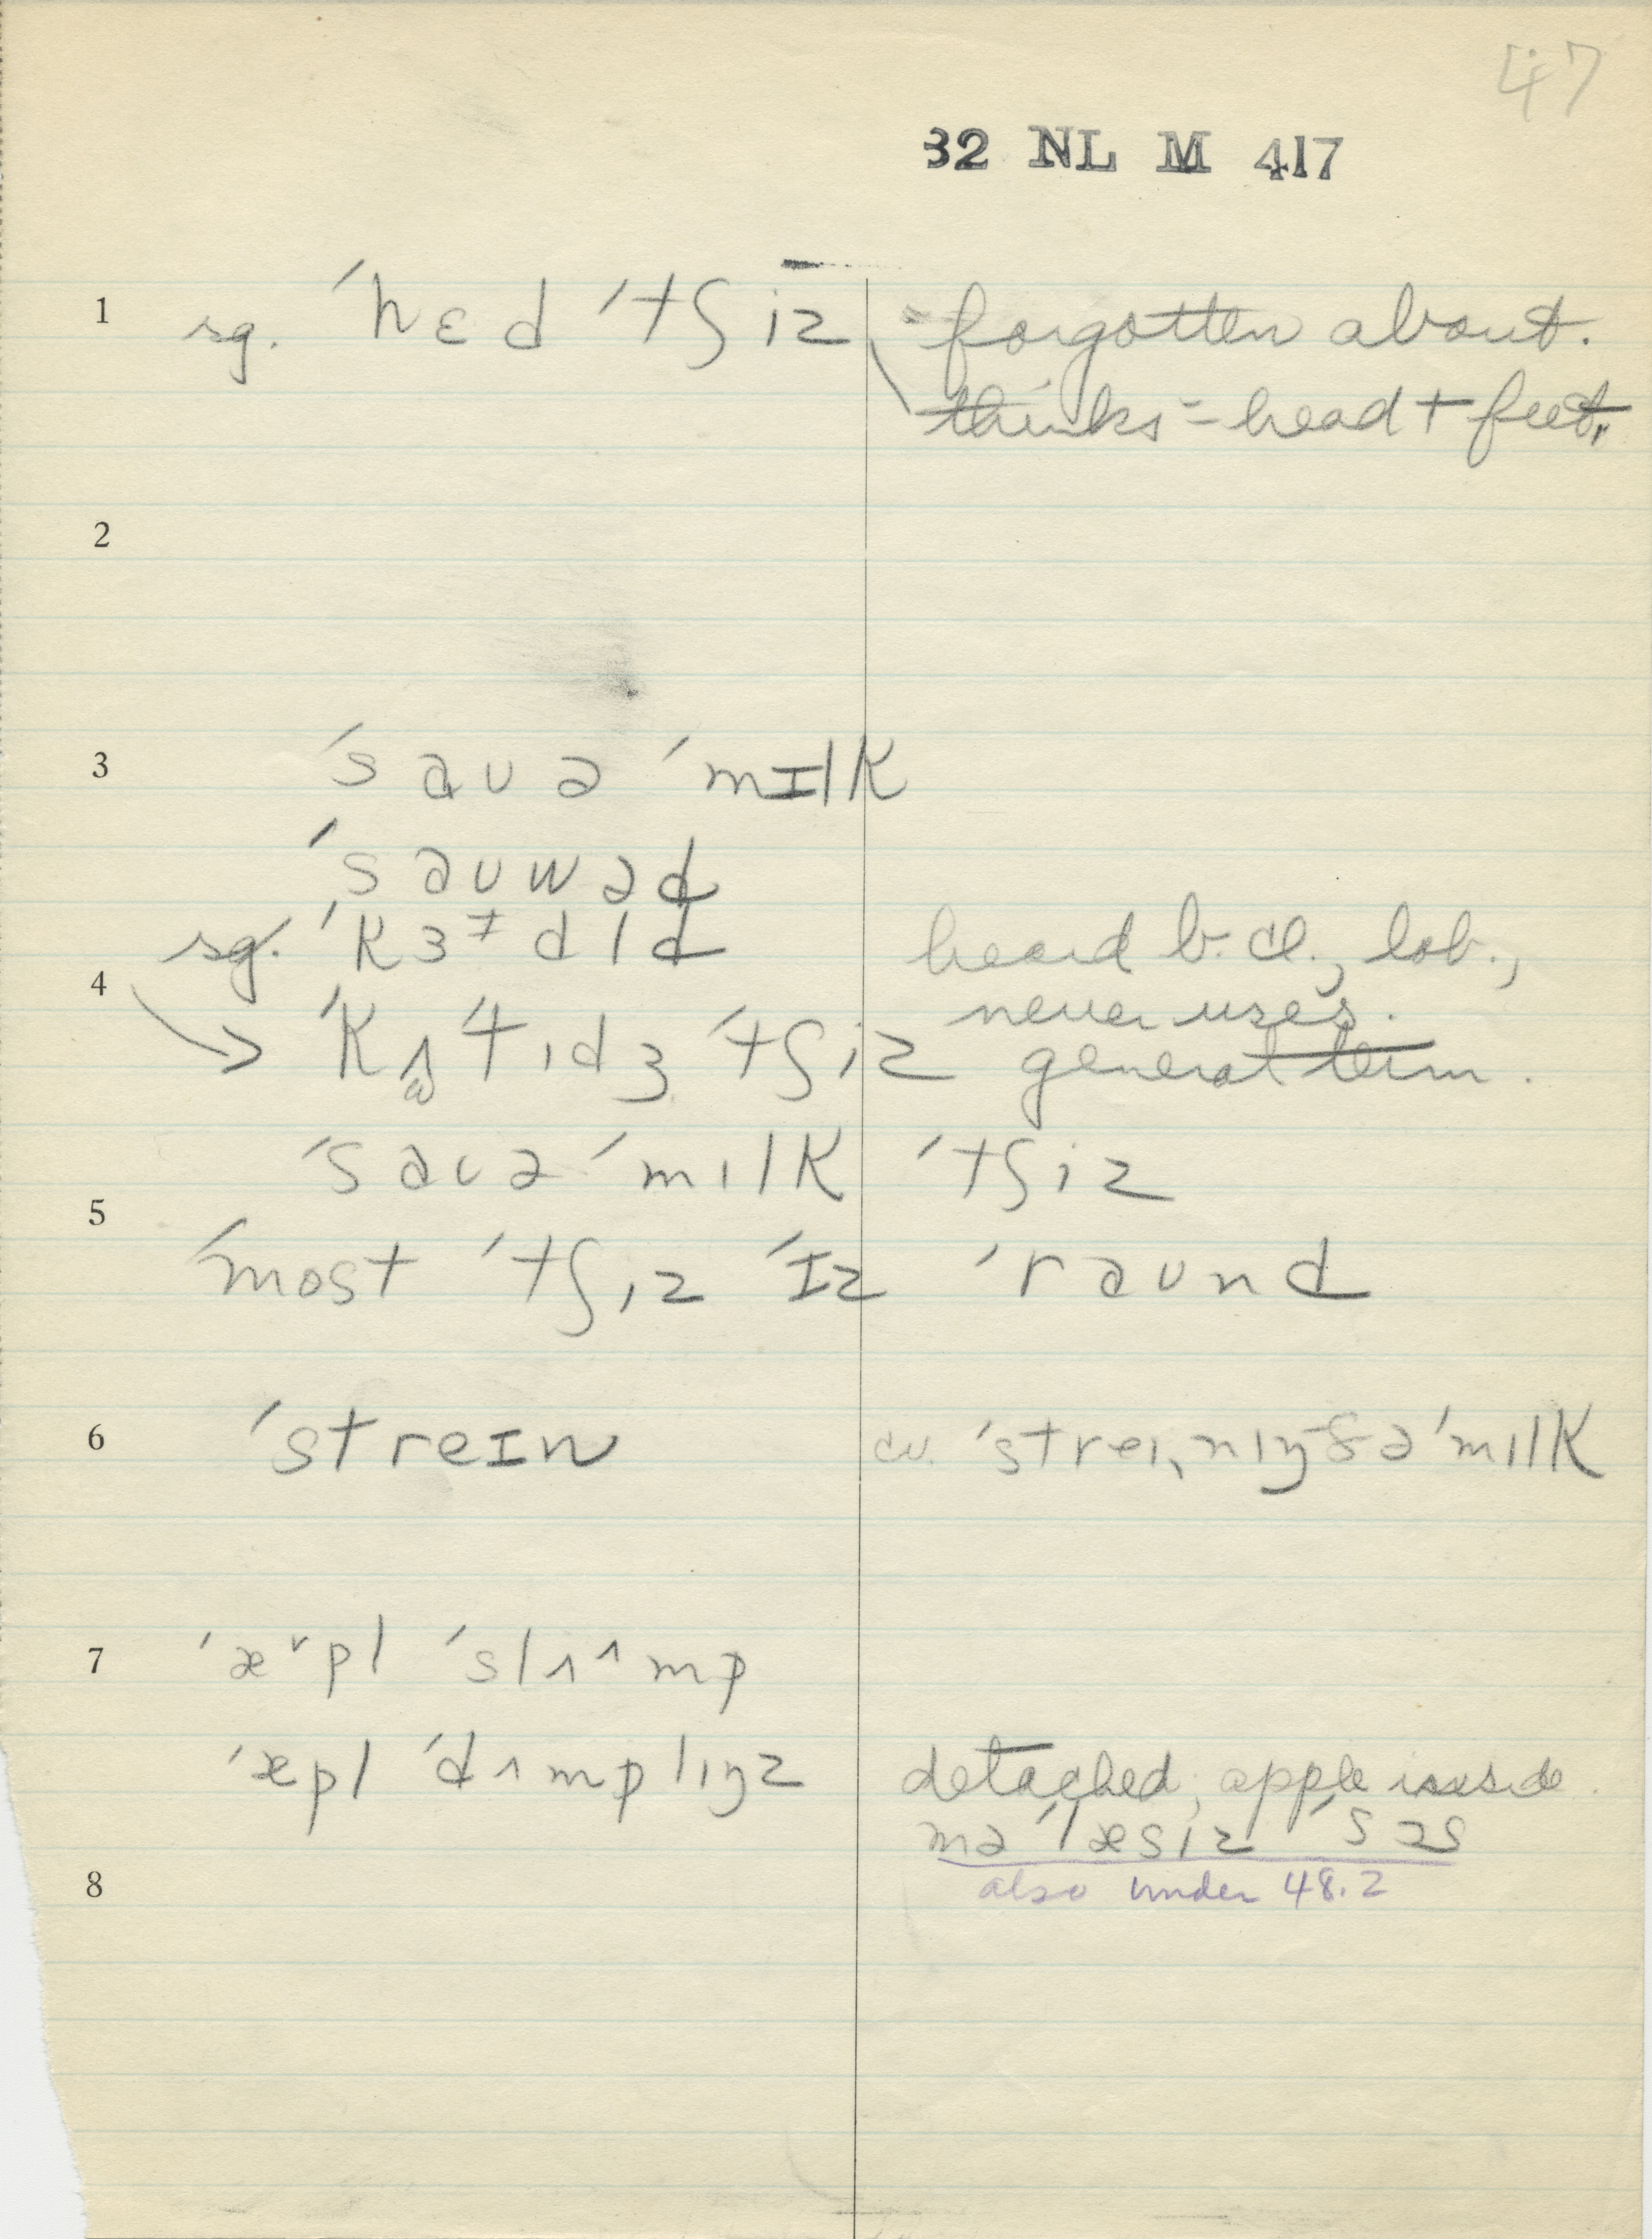 47
32 NL M 417
1 sg. ˈhɛd ˈtʃiz = forgotten about.
thinks = head + feet.
2
3 ˈsaʊə ˈmɪlk
ˈsaʊwəd
sg. ˈkɜɨdld heard b. cl., lob.,
never uses.
4 → ˈkʌɨɪdʒ ˈtʃiz general term.
ˈsaʊə ˈmɪlk ˈtʃiz
5
ˈmost ˈtʃiz ˈɪz ˈraund
6 ˈstreɪn cv. ˈstreɪˌnɪŋ ðə ˈmɪlk
7 ˈæ˅pl ˈslʌ^mp
ˈæpl ˈdʌmplɪŋz detached, apple inside.
mə ˈlæsiz ˈsɔs
8 also under 48.2